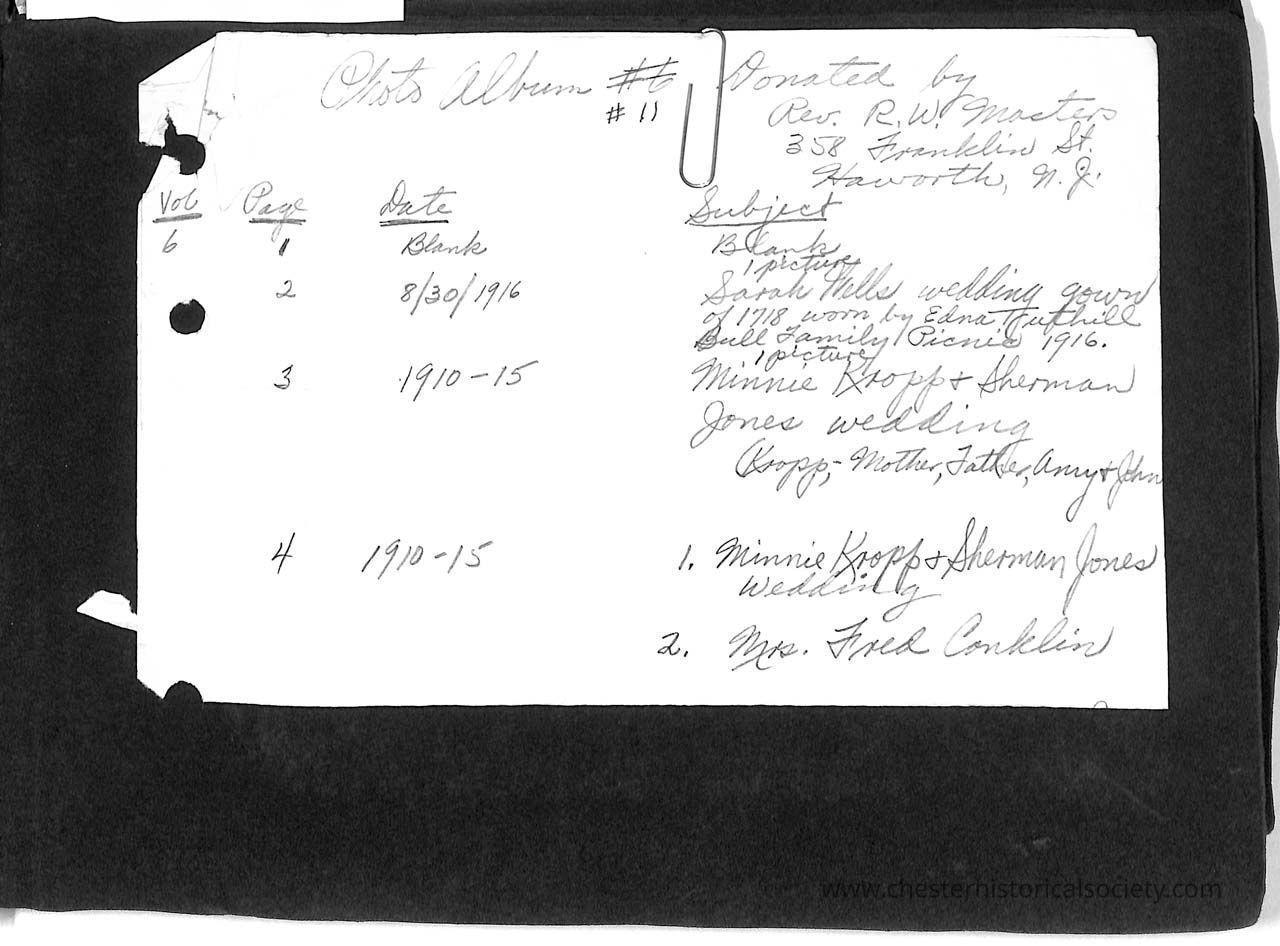 Photo Album #6 Donated by
# 11 Rev. R.W. Masters
358 Franklin St.
Haworth, N.J.
Vol Page Date Subject
6 1 Blank Blank
1 picture
2 8/30/1916 Sarah Wells wedding gown
of 1718 worn by Edna Tuthill
Bull Family Picnic 1916.
1 picture
3 1910-15 Minnie Kropp & Sherman
Jones wedding
Kropp, - Mother, Father, Amy & John
4 1910-15 1. Minnie Kropp & Sherman Jones
Wedding
2. Mrs. Fred Conklin
www.chesterhistoricalsociety.com